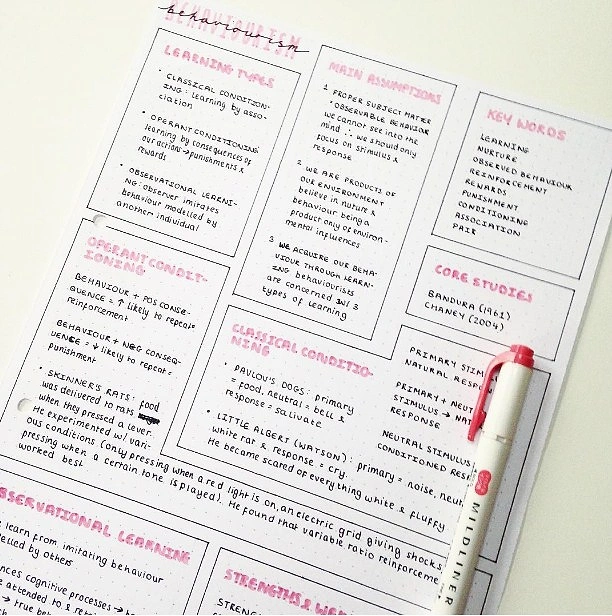 behaviourism
BEHAVIOURISM
LEARNING TYPES
• CLASSICAL CONDITION-
ING: learning by asso-
ciation
• OPERANT CONDITIONING:
learning by consequences of
our actions → punishments &
rewards
• OBSERVATIONAL LEARNI-
NG: observer imitates
behaviour modelled by
another individual
MAIN ASSUMPTIONS
1 PROPER SUBJECT MATTER
= OBSERVABLE BEHAVIOUR
we cannot see into the
mind ∴ we should only
focus on stimulus &
response
2 WE ARE PRODUCTS OF
OUR ENVIRONMENT
believe in nurture &
behaviour being a
product only of environ-
mental influences
3 WE ACQUIRE OUR BEHA-
VIOUR THROUGH LEARN-
ING behaviourists
are concerned in/ 3
types of learning
KEY WORDS
LEARNING
NURTURE
OBSERVED BEHAVIOUR
REINFORCEMENT
REWARDS
PUNISHMENT
CONDITIONING
ASSOCIATION
PAIR
CORE STUDIES
BANDURA (1961)
CHANEY (2004)
OPERANT CONDIT-
IONING
BEHAVIOUR + POS CONSE-
QUENCE = ↑ likely to repeat =
reinforcement
BEHAVIOUR + NEG CONSEQ-
UENCE = ↓ likely to repeat =
punishment
• SKINNER'S RATS: food
was delivered to rats
when they pressed a lever.
He experimented w/ vari-
ous conditions (only pressing when a red light is on, an electric grid giving shocks,
pressing when a certain tone is played). He found that variable ratio reinforceme
worked best
CLASSICAL CONDITIO-
NING
• PAVLOV'S DOGS: primary
= food, neutral = bell &
response = salivate
• LITTLE ALBERT (WATSON): primary = noise, neut
white rat & response = cry.
He became scared of everything white & fluffy
PRIMARY STIM
NATURAL RESPO
PRIMARY + NEUT
STIMULUS → NAT
RESPONSE
NEUTRAL STIMULUS
CONDITIONED RES
OBSERVATIONAL LEARNING
learn from imitating behaviour
elled by others
ences cognitive processes →
attended to & ret
→ true beh
STRENGTHS & WEA
STRENGTH
MILDLINER